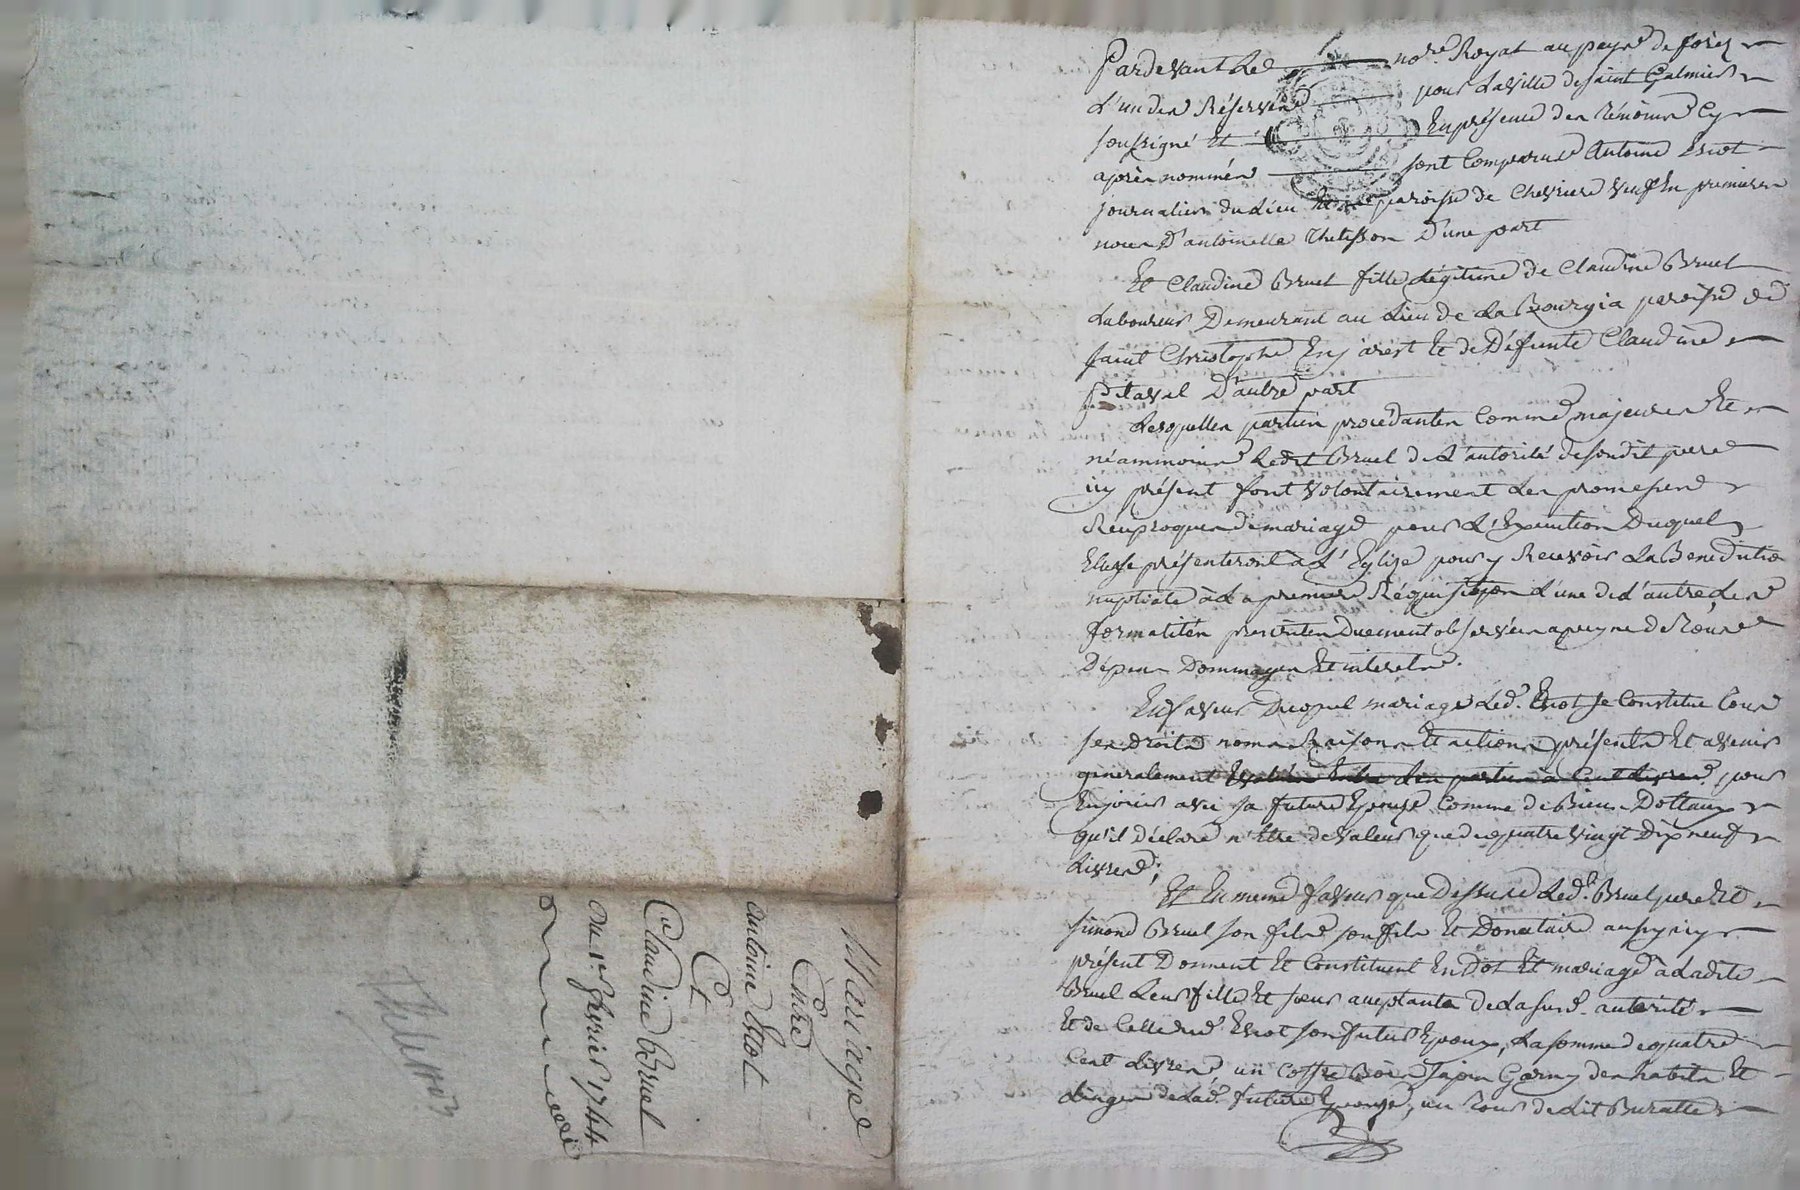 Pardevant Le no.re Royal au pays de forez
L'un des Réservés pour La ville de saint Galmier
soussigné Et En présence des témoins Cy
après nommés sont Comparus Antoine Eriot
journalier du Lieu Et paroisse de Chevriere veuf En premieres
noces D'antoinette thelisson D'une part
Et Claudine Bruel fille Légitime de Claudine Bruel
Laboureur Demeurant au Lieu de La Bourgia paroisse de
saint Christophe En jarest Et de Défunte Claudine
pitaval D'autre part
Lesquelles parties procédantes Comme majeures Et
néammoins Ledit Bruel de L'autorité desondit pere
icy présent font volontairement Les promesses
Réciproques de mariage pour L'Exécution Duquel
Elles se présenteront à L'Eglise pour y Recevoir La Benediction
nuptiale à La premiere Réquisition L'une de L'autre Les
formalités prescrites Duement observées apeyne de Tous
Dépens Dommages Et interets.
En faveur Duquel mariage Led. Eriot se Constitue tous
ses Droits noms Raisons Et actions présents Et avenir
généralement pour
En jouir avec sa future Epouse Comme de Biens Dottaux
qu'il Déclare n'Etre de valeur que de quatre vingt Dix neuf
Livres;
Et En meme faveur que Dessus Led. Bruel pere Et
simond Bruel son fils son fils Et Donataire aussy icy
présent Donnent Et Constituent En Dot Et mariage à Ladite
Bruel Leur fille Et soeur acceptante de La susd. autorité
Et de Celle dud. Eriot son futur Epoux, La somme de quatre
Cent Livres un Coffre Bois sapin Garny des habits Et
Linges de Lad. future Epouse, un Tour de Lit Buratte
Mariage
Entre
antoine Eriot
Et
Claudine Bruel
du 1er fevrier 1744